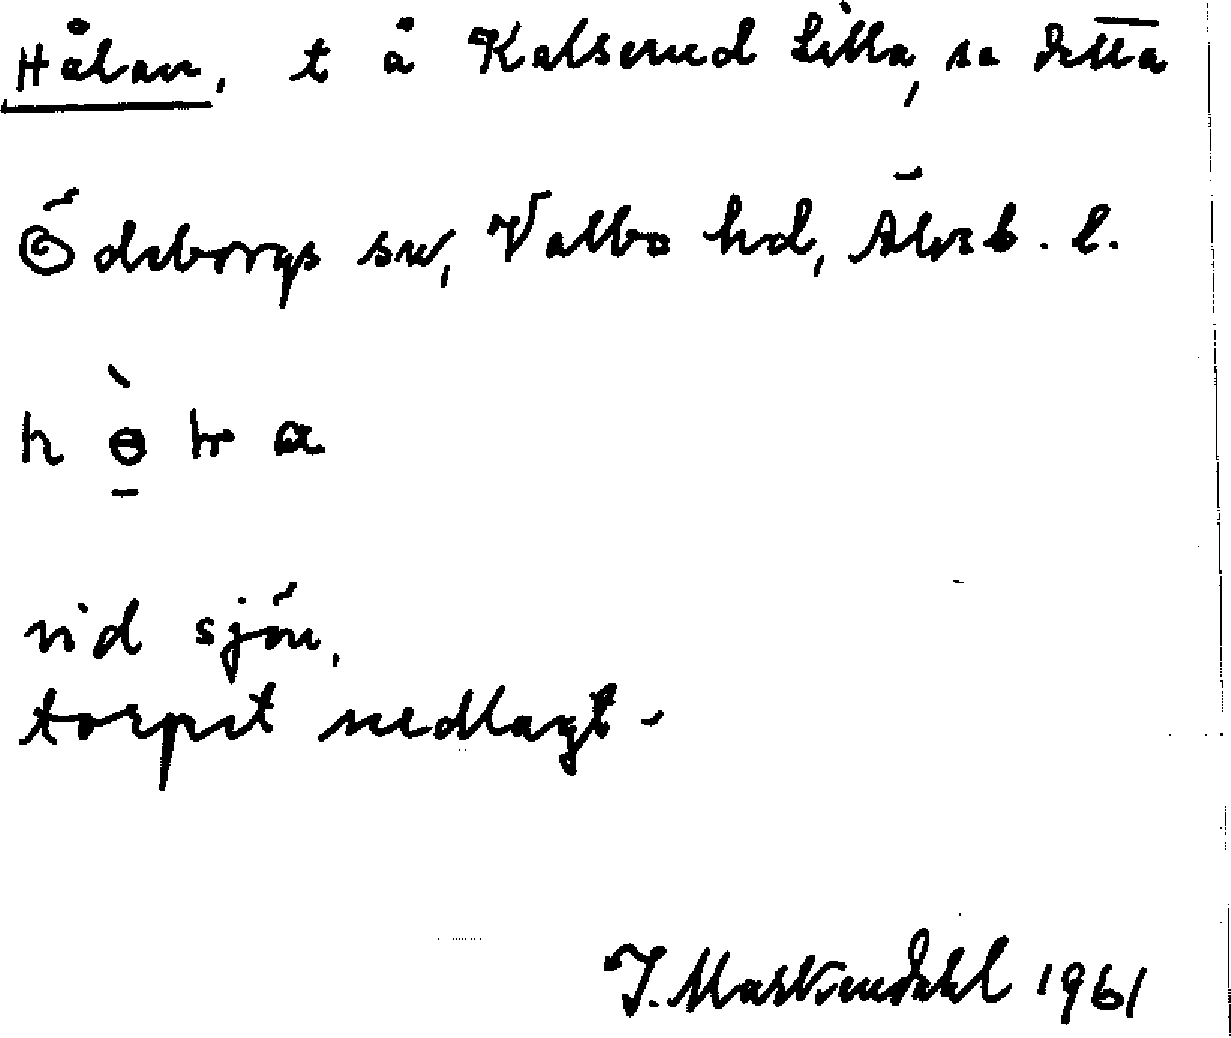 Hålan, t å Kalserud Lilla, se detta
Ödeborgs sn, Valbo hd, Älvsb. l.
vid sjön,
torpet nedlagt -
1961